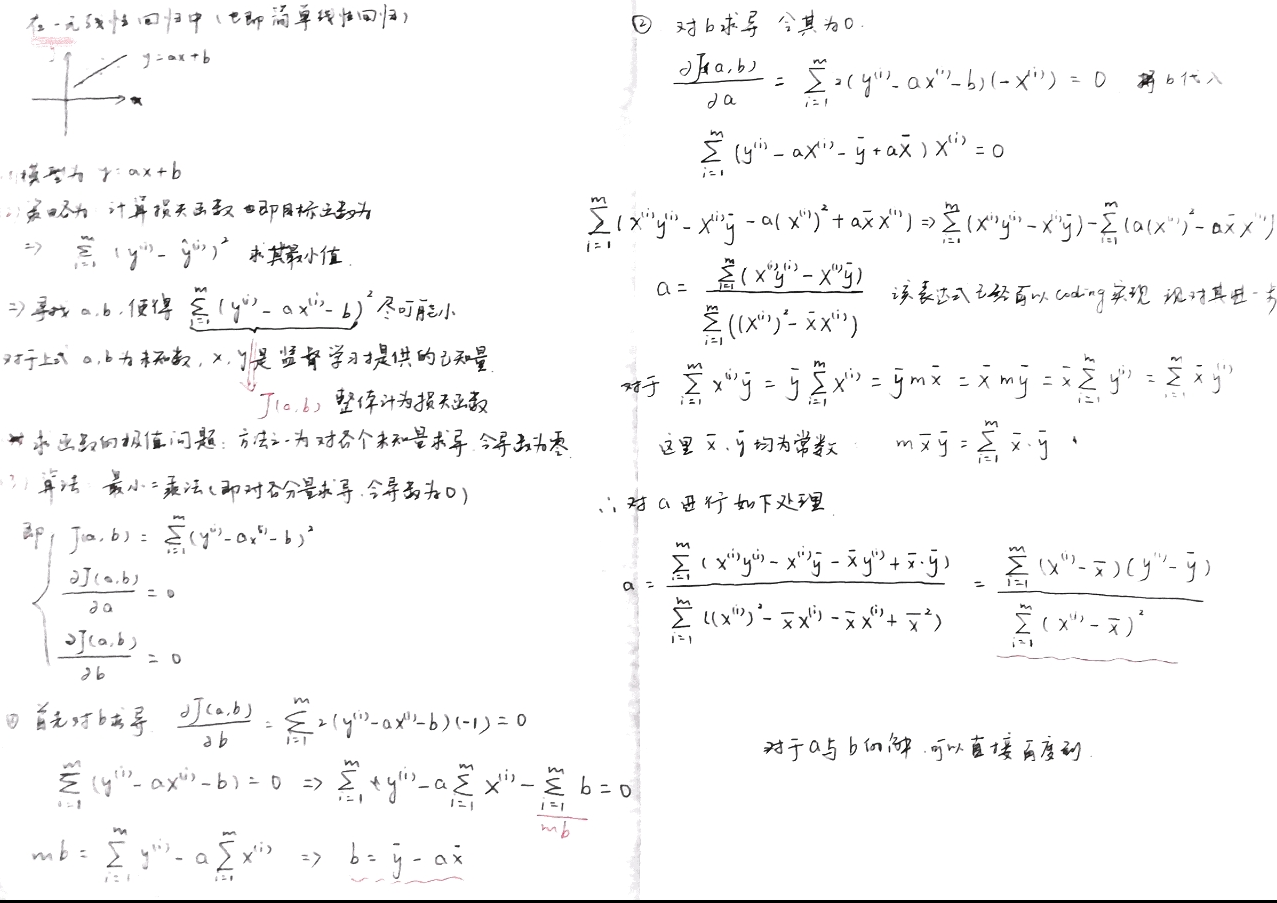 在一元线性回归中(也即简单线性回归)
y
y=ax+b
x
(1)模型为 y=ax+b
(2)策略为 计算损失函数 也即目标函数为
=> ∑_{i=1}^{m} (y^{(i)} - ŷ^{(i)})² 求其最小值
=> 寻找 a,b,使得 ∑_{i=1}^{m} (y^{(i)} - ax^{(i)} - b)² 尽可能小
对于上式 a,b为未知数,x,y是监督学习才提供的已知量
J(a,b) 整体计为损失函数
* 求函数的极值问题:方法之一为对各个未知量求导,令导函数为零
(3)算法 最小二乘法(即对各分量求导,令导函数为0)
即 { J(a,b) = ∑_{i=1}^{m} (y^{(i)} - ax^{(i)} - b)²
∂J(a,b)/∂a = 0
∂J(a,b)/∂b = 0
① 首先对b求导 ∂J(a,b)/∂b = ∑_{i=1}^{m} 2(y^{(i)} - ax^{(i)} - b)(-1) = 0
∑_{i=1}^{m} (y^{(i)} - ax^{(i)} - b) = 0 => ∑_{i=1}^{m} y^{(i)} - a∑_{i=1}^{m} x^{(i)} - ∑_{i=1}^{m} b = 0
mb
mb = ∑_{i=1}^{m} y^{(i)} - a∑_{i=1}^{m} x^{(i)} => b = ȳ - ax̄
② 对b求导 令其为0.
∂J(a,b)/∂a = ∑_{i=1}^{m} 2(y^{(i)} - ax^{(i)} - b)(-x^{(i)}) = 0 将b代入
∑_{i=1}^{m} (y^{(i)} - ax^{(i)} - ȳ + ax̄)x^{(i)} = 0
∑_{i=1}^{m} (x^{(i)}y^{(i)} - x^{(i)}ȳ - a(x^{(i)})² + ax̄x^{(i)}) => ∑_{i=1}^{m} (x^{(i)}y^{(i)} - x^{(i)}ȳ) - ∑_{i=1}^{m} (a(x^{(i)})² - ax̄x^{(i)})
a = ∑_{i=1}^{m} (x^{(i)}y^{(i)} - x^{(i)}ȳ) / ∑_{i=1}^{m} ((x^{(i)})² - x̄x^{(i)}) 该表达式已经可以coding实现 现对其进一步
对于 ∑_{i=1}^{m} x^{(i)}ȳ = ȳ∑_{i=1}^{m} x^{(i)} = ȳmx̄ = x̄mȳ = x̄∑_{i=1}^{m} y^{(i)} = ∑_{i=1}^{m} x̄y^{(i)}
这里 x̄,ȳ均为常数 mx̄ȳ = ∑_{i=1}^{m} x̄·ȳ
∴ 对a进行如下处理
a = ∑_{i=1}^{m} (x^{(i)}y^{(i)} - x^{(i)}ȳ - x̄y^{(i)} + x̄·ȳ) / ∑_{i=1}^{m} ((x^{(i)})² - x̄x^{(i)} - x̄x^{(i)} + x̄²) = ∑_{i=1}^{m} (x^{(i)} - x̄)(y^{(i)} - ȳ) / ∑_{i=1}^{m} (x^{(i)} - x̄)²
对于a与b的解,可以直接百度到.